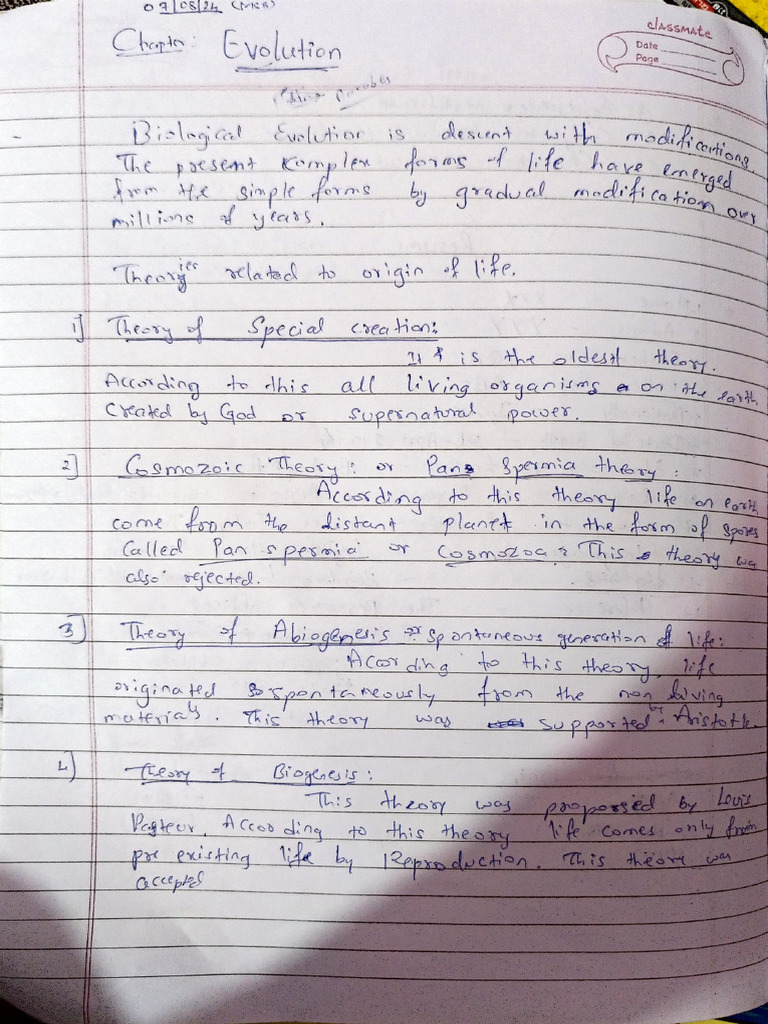 07/08/24
classmate
Date
Page
Chapter: Evolution
Biological Evolution is descent with modifications.
The present Komplex forms of life have emerged
from the simple forms by gradual modification over
millions of years.
Theories related to origin of life.
1] Theory of Special creation:
It is the oldest theory.
According to this all living organisms on the earth
Created by God or supernatural power.
2] Cosmozoic Theory: or Pan spermia theory:
According to this theory life on earth
come from the distant planet in the form of spores
Called Pan spermia or Cosmozoa: This theory was
also rejected.
3] Theory of Abiogenesis or spontaneous generation of life:
According to this theory, life
originated spontaneously from the non living
materials. This theory was supported by Aristotle.
4] Theory of Biogenesis:
This theory was proporsed by Louis
Pasteur. According to this theory life comes only from
pre existing life by Reproduction. This theory was
accepted